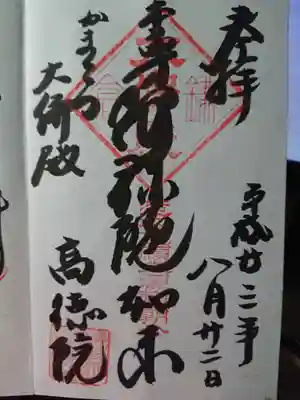 奉拝
平成廿三年
八月廿二日
本尊阿弥陀如来
かまくら
大佛殿
高徳院